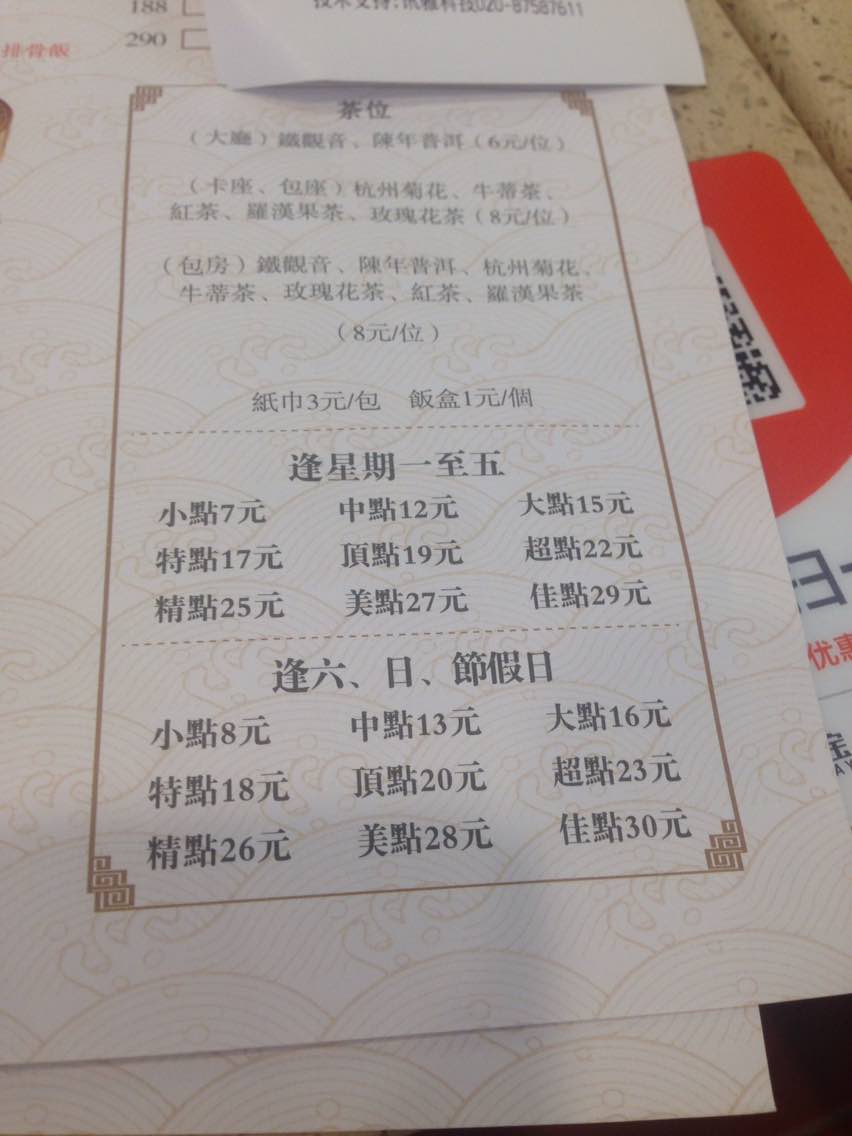 技术支持:讯雅科技020-87587611
188
290
排骨飯
茶位
（大廳）鐵觀音、陳年普洱（6元/位）
（卡座、包座）杭州菊花、牛蒂茶、
紅茶、羅漢果茶、玫瑰花茶（8元/位）
（包房）鐵觀音、陳年普洱、杭州菊花、
牛蒂茶、玫瑰花茶、紅茶、羅漢果茶
（8元/位）
紙巾3元/包 飯盒1元/個
逢星期一至五
小點7元 中點12元 大點15元
特點17元 頂點19元 超點22元
精點25元 美點27元 佳點29元
逢六、日、節假日
小點8元 中點13元 大點16元
特點18元 頂點20元 超點23元
精點26元 美點28元 佳點30元
优惠